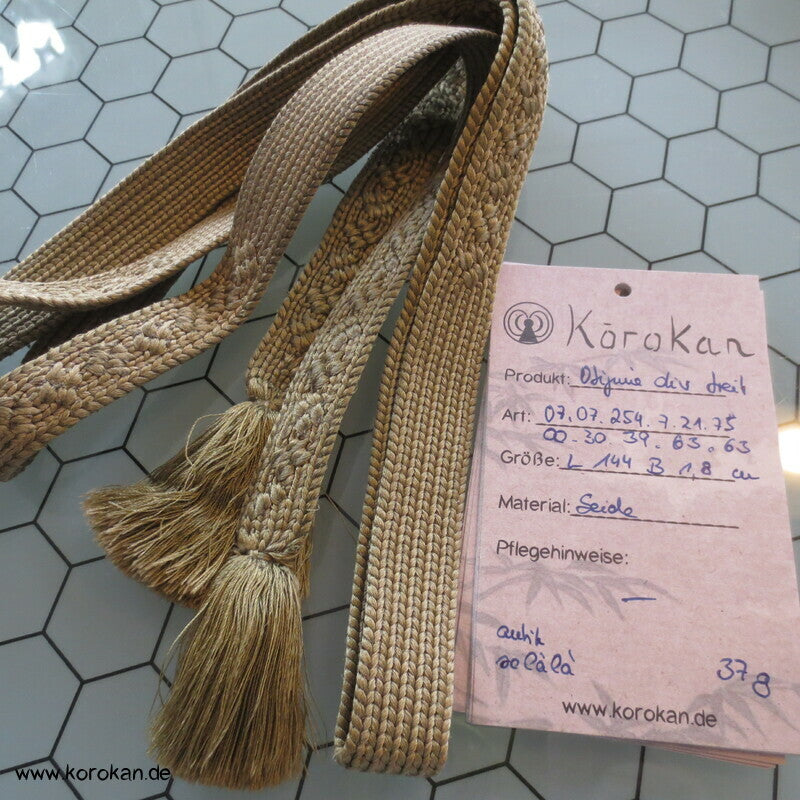 Kōrokan
Produkt: Obijime div breit
Art: 07.07.254.7.21.75
00.30.39.63.63
Größe: L 144 B 1,8 cm
Material: Seide
Pflegehinweise:
—
antik
solàlà 37g
www.korokan.de
www.korokan.de